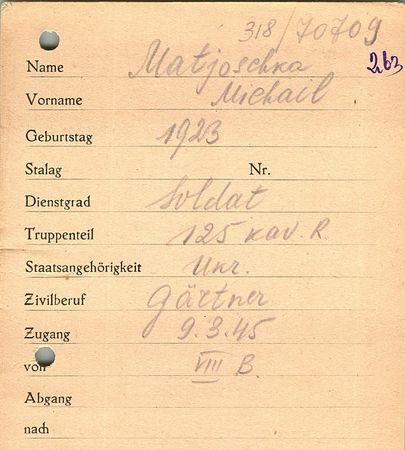 318/70709
263
Name Matjoschka
Vorname Michail
Geburtstag 1923
Stalag Nr.
Dienstgrad Soldat
Truppenteil 125 kav. R.
Staatsangehörigkeit Ukr.
Zivilberuf Gärtner
Zugang 9.3.45
von VIII B.
Abgang
nach